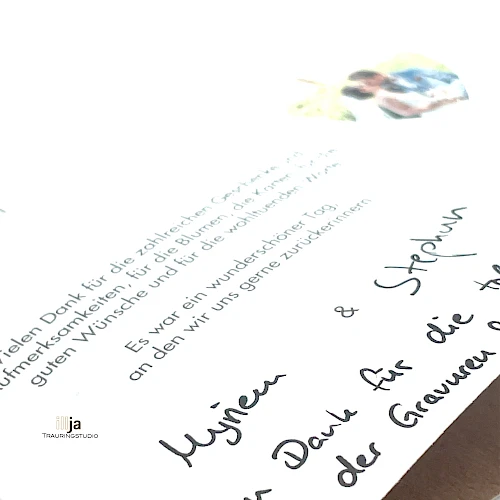 Vielen Dank für die zahlreichen Geschenke und
Aufmerksamkeiten, für die Blumen, die Karten, für die
guten Wünsche und für die wohltuenden Worte
Es war ein wunderschöner Tag,
an den wir uns gerne zurückerinnern
Myriem & Stephan
Dank für die
der Gravuren
ja
TRAURINGSTUDIO